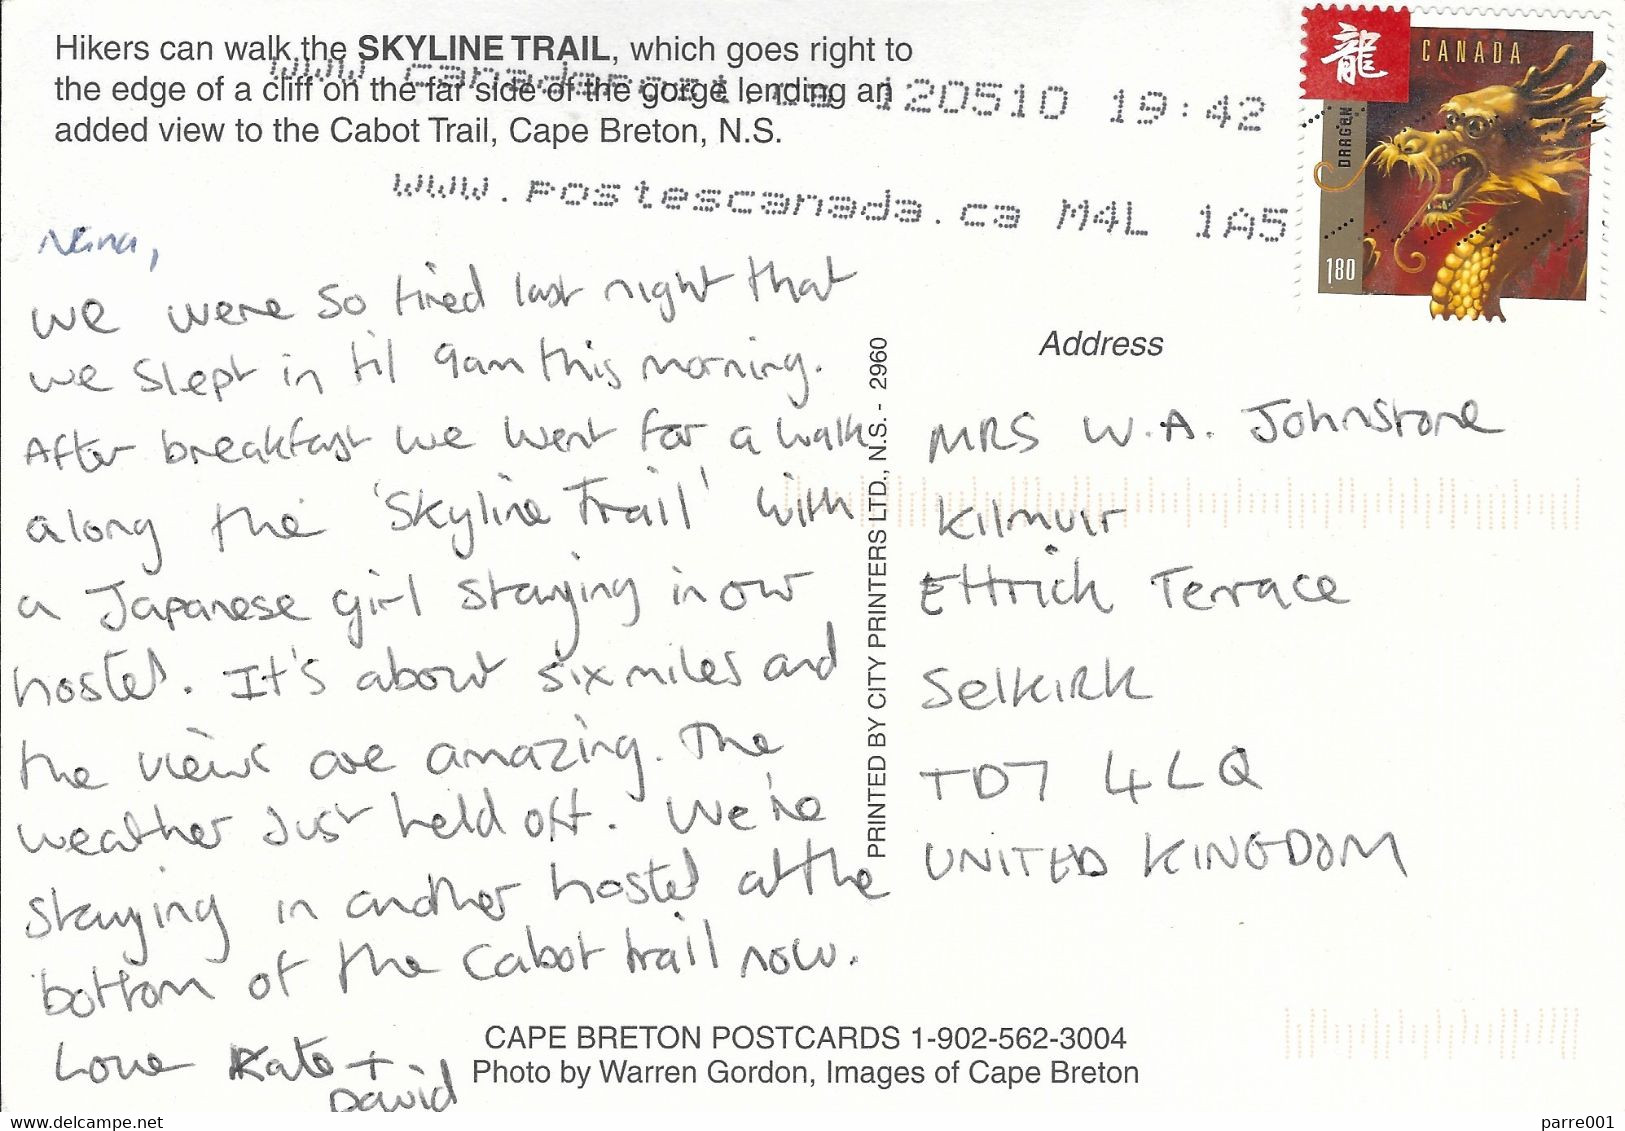 Hikers can walk the SKYLINE TRAIL, which goes right to
the edge of a cliff on the far side of the gorge lending an
added view to the Cabot Trail, Cape Breton, N.S.
www.canadapost.ca 120510 19:42
www.postescanada.ca M4L 1A5
龍
CANADA
DRAGON
180
Nana,
We were so tired last night that
we slept in til 9am this morning.
After breakfast we went for a walk
along the 'Skyline Trail' with
a Japanese girl staying in our
hostel. It's about six miles and
the views are amazing. The
weather just held off. We're
staying in another hostel at the
bottom of the Cabot trail now.
Love Kate +
David
PRINTED BY CITY PRINTERS LTD., N.S. - 2960
Address
MRS W.A. Johnstone
Kilmuir
Ettrick Terrace
Selkirk
TD7 4LQ
UNITED KINGDOM
CAPE BRETON POSTCARDS 1-902-562-3004
Photo by Warren Gordon, Images of Cape Breton
delcampe.net
parre001